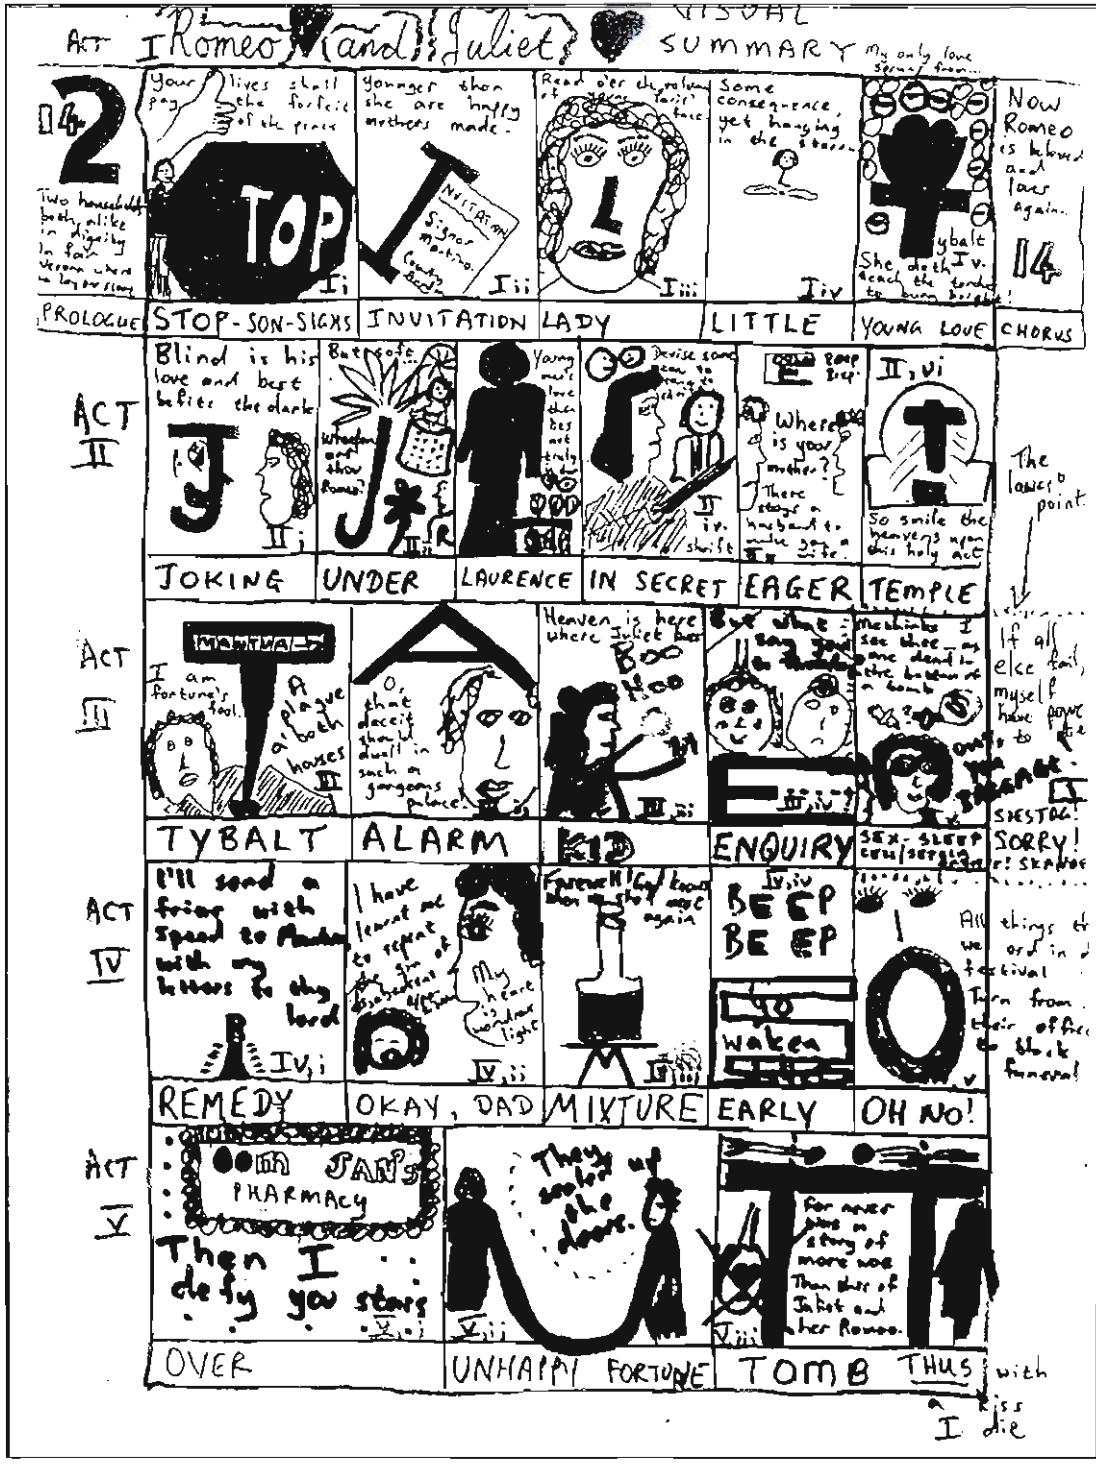 ACT I Romeo and Juliet VISUAL
SUMMARY
My only love
sprung from...
14
2
Two households
both alike
in dignity
In fair
Verona where
we lay our scene
PROLOGUE
Your lives shall
pay the forfeit
of the peace
STOP
I i
STOP-SON-SIGNS
Younger than
she are happy
mothers made.
INVITATION
Signor
Martino
County
I ii
INVITATION
Read o'er the volume
of young Paris'
face
L
I iii
LADY
Some
consequence,
yet hanging
in the stars...
I iv
LITTLE
Tybalt
I v.
She doth
teach the torches
to burn bright!
YOUNG LOVE
Now
Romeo
is beloved
and
loves
again...
14
CHORUS
ACT
II
Blind is his
love and best
befits the dark
J
II i
JOKING
But soft...
Wherefore
art
thou
Romeo?
UNDER
Young
men's
love
then
lies
not
truly
LAURENCE
Devise some
mean to
II
iv.
shrift
IN SECRET
BEEP
BEEP
Where
is your
mother?
There
stays a
husband to
make you a
wife.
EAGER
II, vi
T
So smile the
heavens upon
this holy act
TEMPLE
The
lowest
point.
ACT
III
MANTUA →
I am
fortune's
fool.
A
plague
a' both
houses
III
TYBALT
A
O,
that
deceit
should
dwell in
such a
gorgeous
palace.
III, ii
ALARM
Heaven is here
where Juliet lives
BOO
HOO
III, iii
KID
But what
say you
to Thursday
E
III, iv
ENQUIRY
Methinks I
see thee, as
one dead in
the bottom of
a tomb
you
BAGGAGE
SEX-SLEEP
If all
else fail,
myself
have power
to die
SIESTOG!
SORRY!
ACT
IV
I'll send a
friar with
speed to Mantua
with my
letters to thy
lord
R
IV, i
REMEDY
I have
learnt me
to repent
the sin of
disobedient
My
heart
is
wondrous
light
IV, ii
OKAY, DAD
Farewell! God knows
when we shall meet
again
IV iii
MIXTURE
IV, iv
BEEP
BEEP
Go
waken
EARLY
O
v
OH NO!
All things th
we ord in d
festival
Turn from
their office
to black
funeral
ACT
V
JAN'S
PHARMACY
Then I
defy you stars
V, i
OVER
They
sealed up
the
doors.
V, ii
UNHAPPY FORTUNE
For never
was a
story of
more woe
Than this of
Juliet and
her Romeo.
V, iii
TOMB
THUS with
a kiss
I die